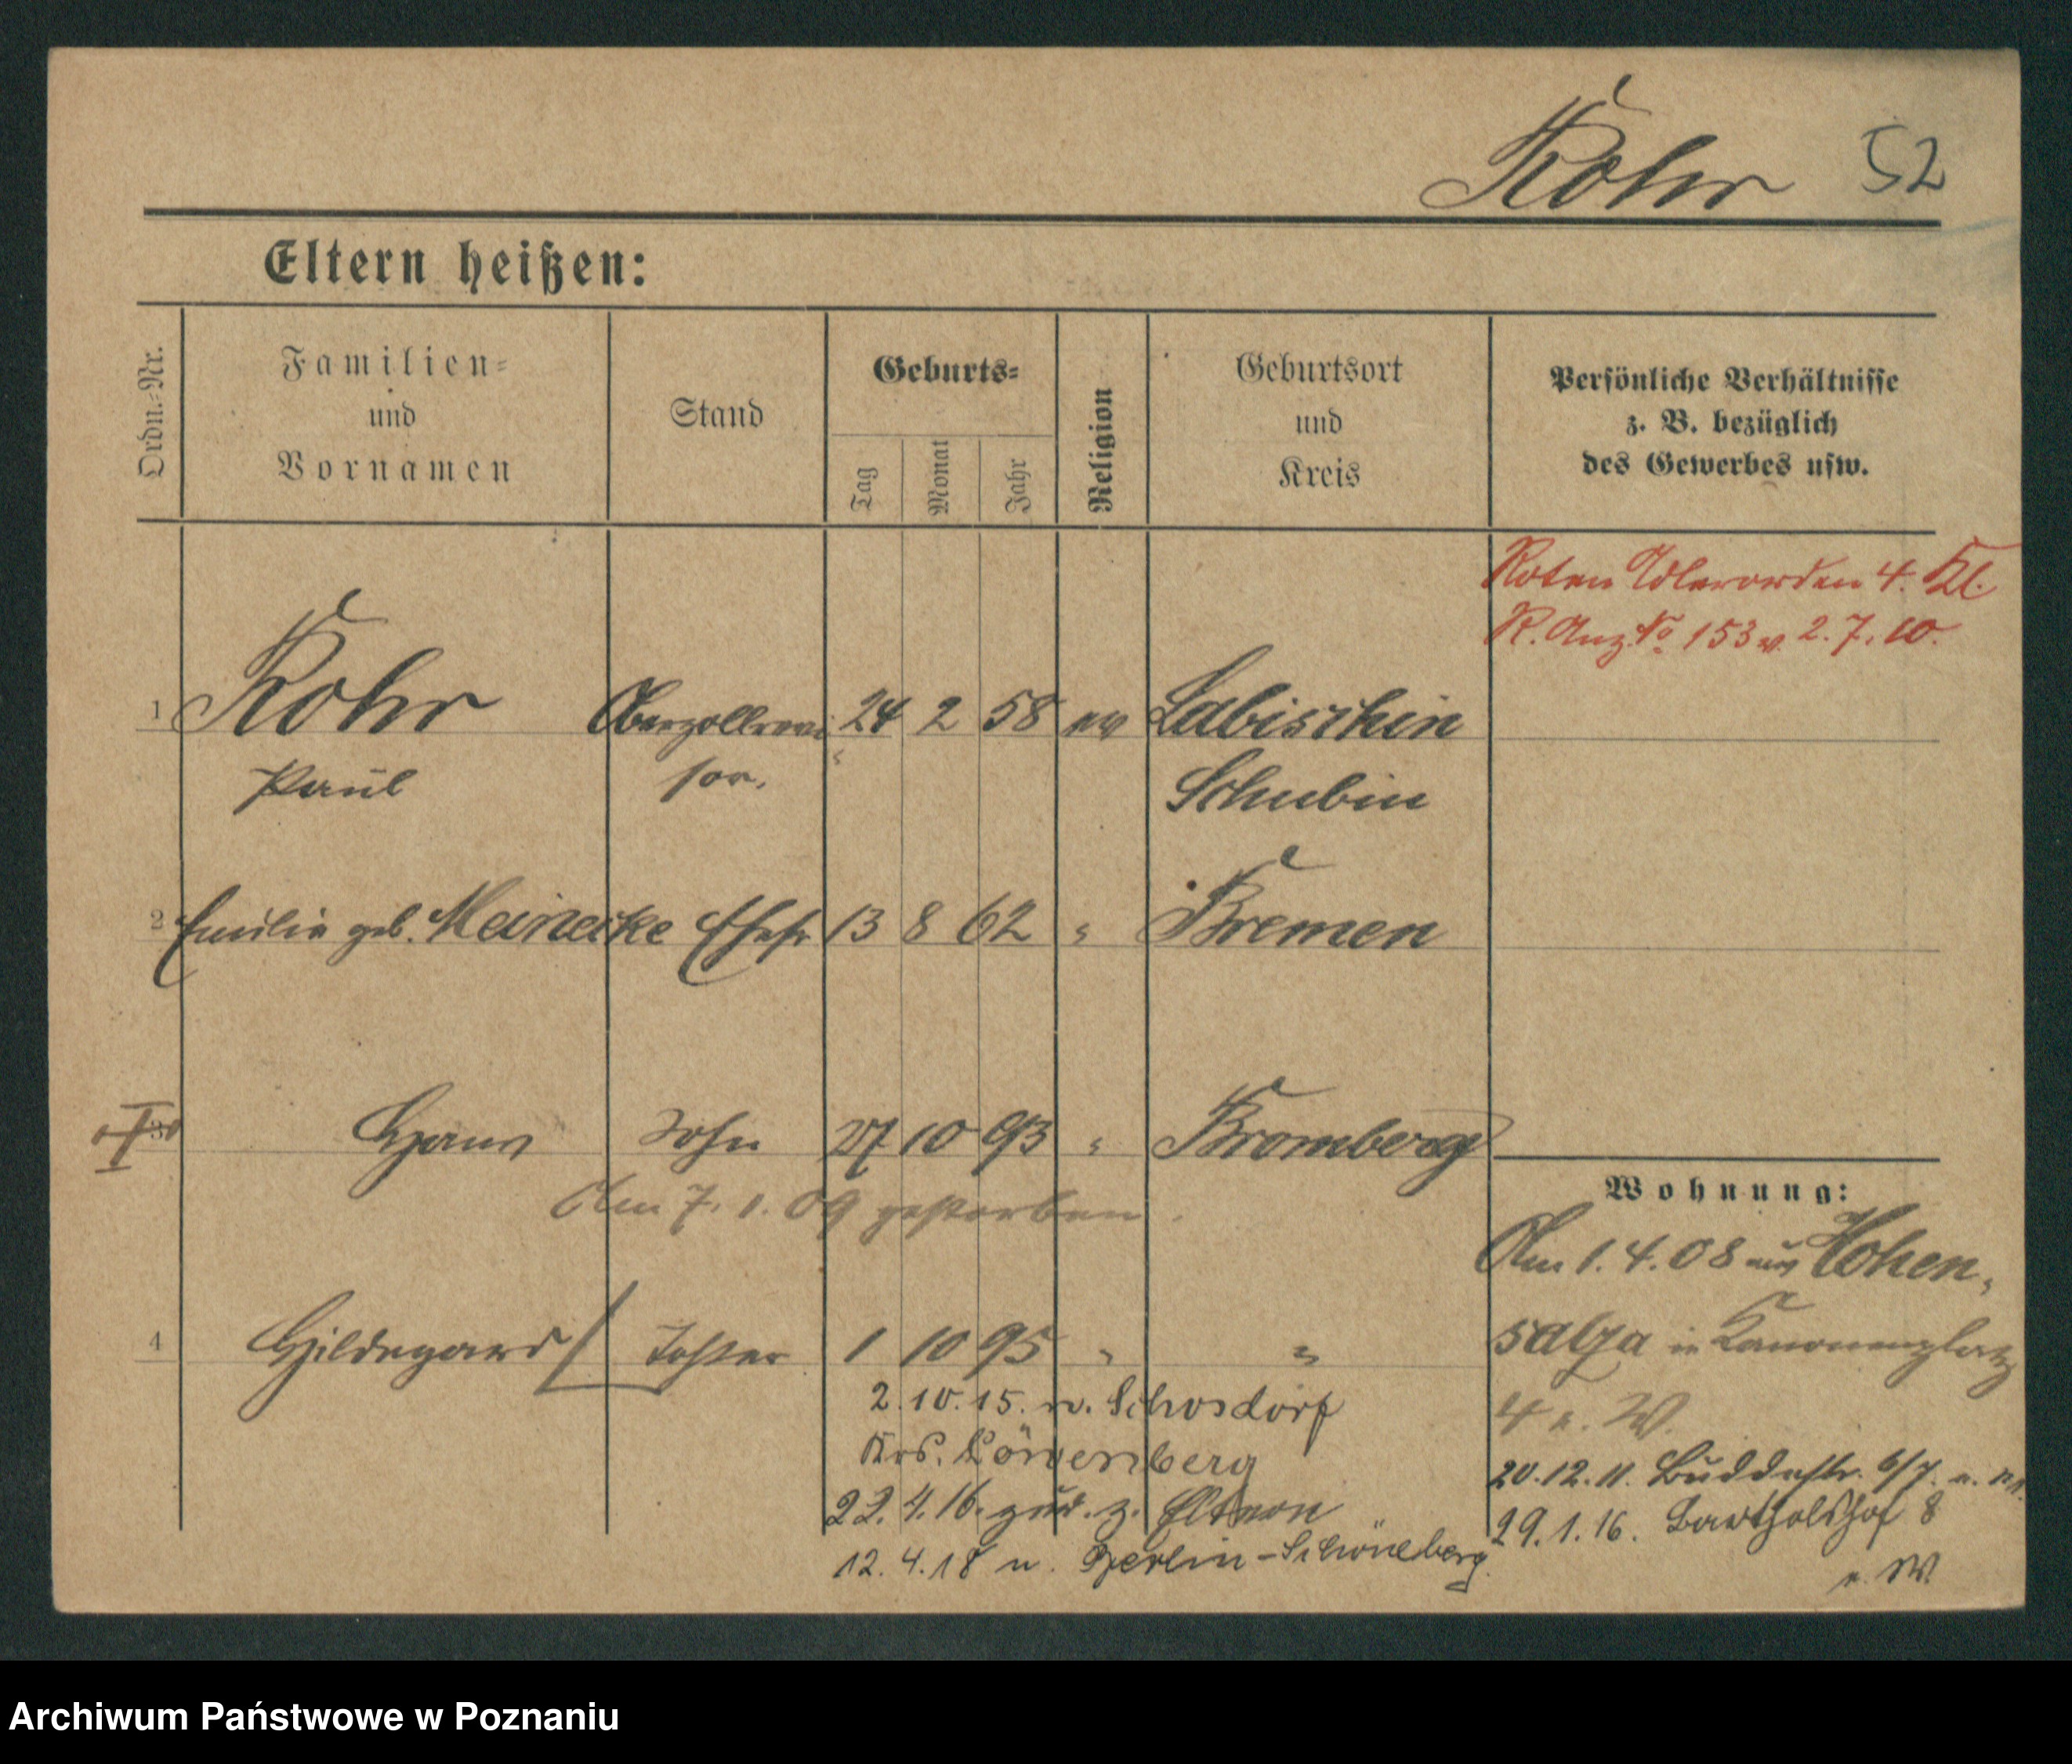 Kohr 52
Eltern heißen:
Ordn.-Nr.
Familien-
und
Vornamen
Stand
Geburts-
Tag
Monat
Jahr
Religion
Geburtsort
und
Kreis
Persönliche Verhältnisse
z. B. bezüglich
des Gewerbes usw.
Roten Adlerorden 4. Kl.
R. Anz. No 153 v. 2.7.10.
1 Kohr Oberzollrevi- 24 2 58 ev Labischin
Paul sor. Schubin
2 Emilie geb. Meinecke Ehefr 13 8 62 " Bremen
3 Hans Sohn 27 10 93 " Bromberg
Am 7.1.09 gestorben.
4 Hildegard Tochter 1 10 95 " "
2.10.15. n. Schosdorf
Krs. Löwenberg
22.4.16. zur. z. Eltern
12.4.18 n. Berlin-Schöneberg.
Wohnung:
Am 1.4.08 aus Hohen-
salza in Kanonenplatz
4 e. W.
20.12.11. Buddestr. 6/7. e. W.
29.1.16. Bartholdshof 8
e. W.
Archiwum Państwowe w Poznaniu